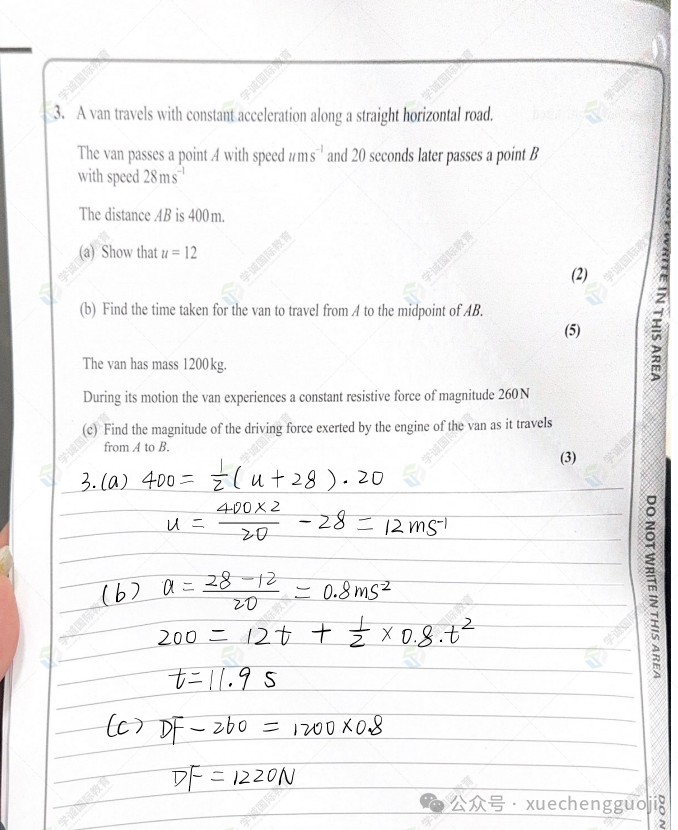 3. A van travels with constant acceleration along a straight horizontal road.
The van passes a point A with speed u m s⁻¹ and 20 seconds later passes a point B
with speed 28 m s⁻¹
The distance AB is 400 m.
(a) Show that u = 12
(2)
(b) Find the time taken for the van to travel from A to the midpoint of AB.
(5)
The van has mass 1200 kg.
During its motion the van experiences a constant resistive force of magnitude 260 N
(c) Find the magnitude of the driving force exerted by the engine of the van as it travels
from A to B.
(3)
3.(a) 400 = 1/2 (u + 28) . 20
u = 400×2/20 - 28 = 12 ms⁻¹
(b) a = 28-12/20 = 0.8 ms²
200 = 12t + 1/2 × 0.8 . t²
t = 11.9 s
(c) DF - 260 = 1200×0.8
DF = 1220N
DO NOT WRITE IN THIS AREA
DO NOT WRITE IN THIS AREA
DO N
学诚国际教育
公众号 · xuechengguoji